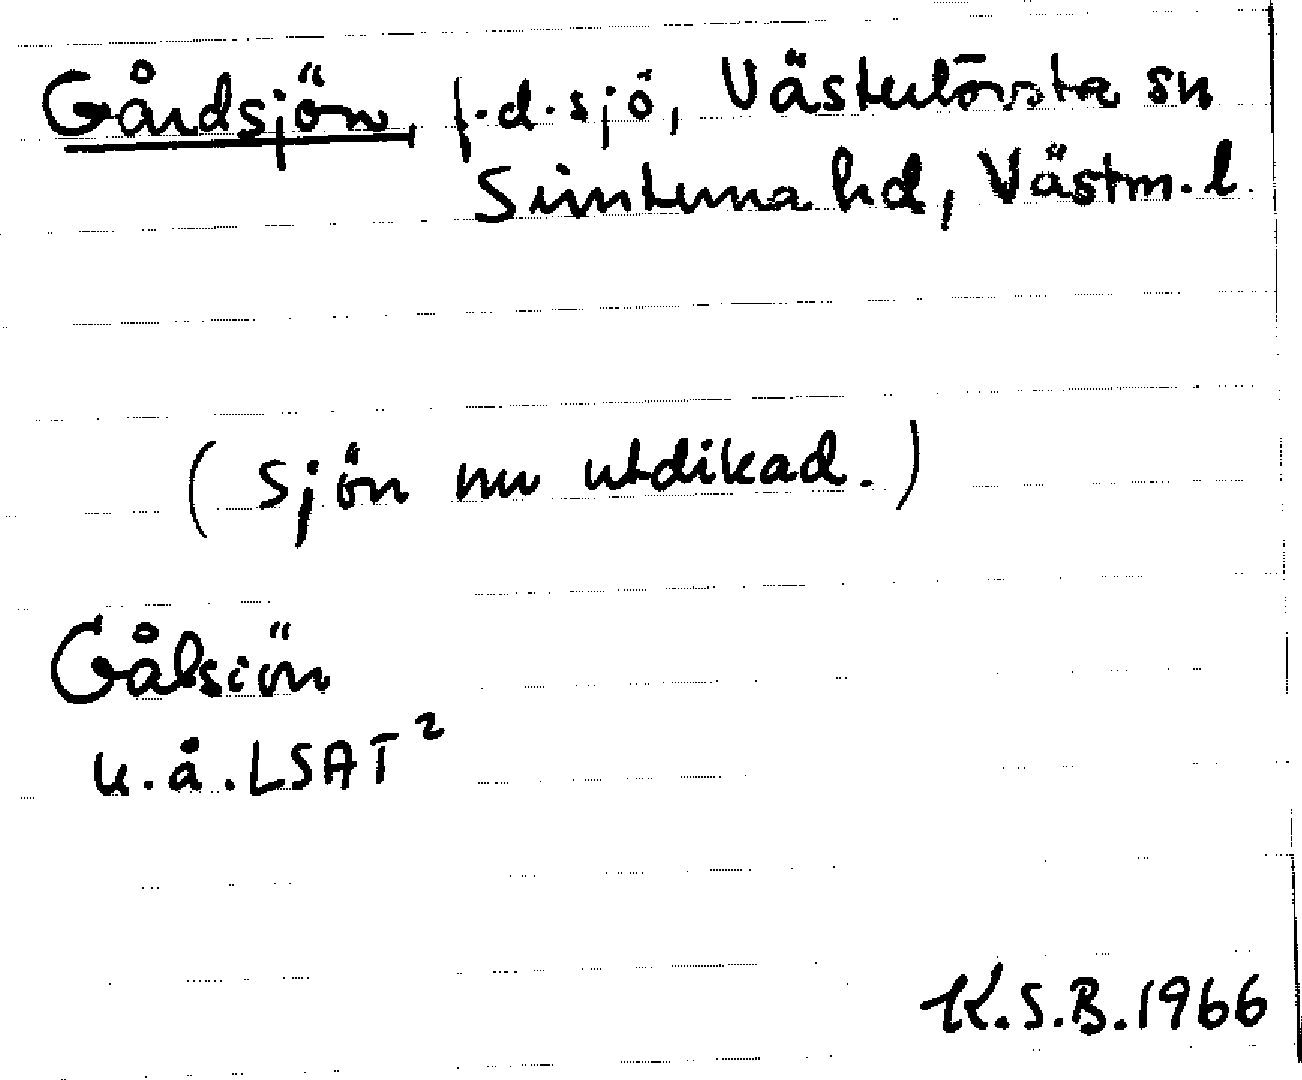 Gårdsjön, f.d. sjö, Västerlövsta sn
Simtuna hd, Västm. l.
(Sjön nu utdikad.)
Gålsiön
u.å. LSA T²
K.S.B. 1966